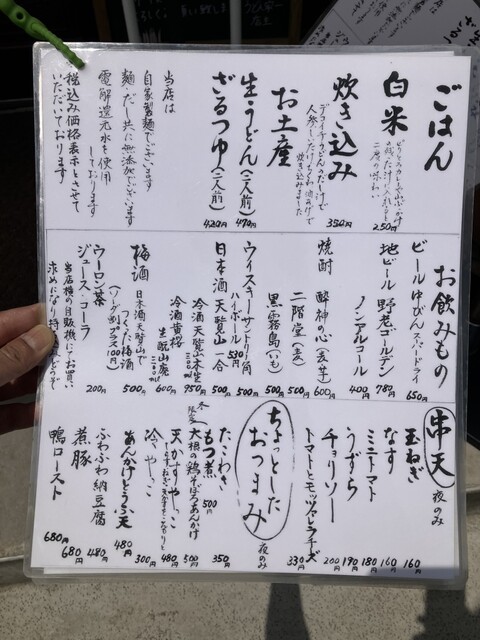 ごはん
白米
250円
炊き込み
350円
お土産
生うどん(二人前)
470円
ざるつゆ(二人前)
420円
当店は
自家製麺でございます
麺・だし共に無添加でございます
電解還元水を使用
しております
税込み価格表示とさせて
いただいております
お飲みもの
ビール中びん スーパードライ
650円
地ビール 野老ゴールデン
780円
ノンアルコール
400円
焼酎
酔神の心(麦・芋)
600円
二階堂(麦)
500円
黒霧島(いも)
500円
ウイスキー サントリー角
ハイボール 530円
日本酒 天覧山 一合
500円
冷酒 天覧山本生
950円
冷酒 黄桜
600円
梅酒 日本酒天覧山で
つくった梅酒
500円
(ソーダ割プラス100円)
ウーロン茶
200円
ジュース・コーラ
当店横の自販機にてお買い
求めになり
串天 夜のみ
玉ねぎ
160円
なす
160円
ミニトマト
180円
うずら
190円
チョリソー
200円
トマトとモッツァレラチーズ
330円
ちょっとしたおつまみ
夜のみ
たこわさ
350円
もつ煮
500
大根の鶏そぼろあんかけ
500円
天かすやっこ
480円
冷やっこ
300円
あんかけとうふ天
480円
ふわふわ納豆腐
480円
煮豚
680円
鴨ロースト
680円